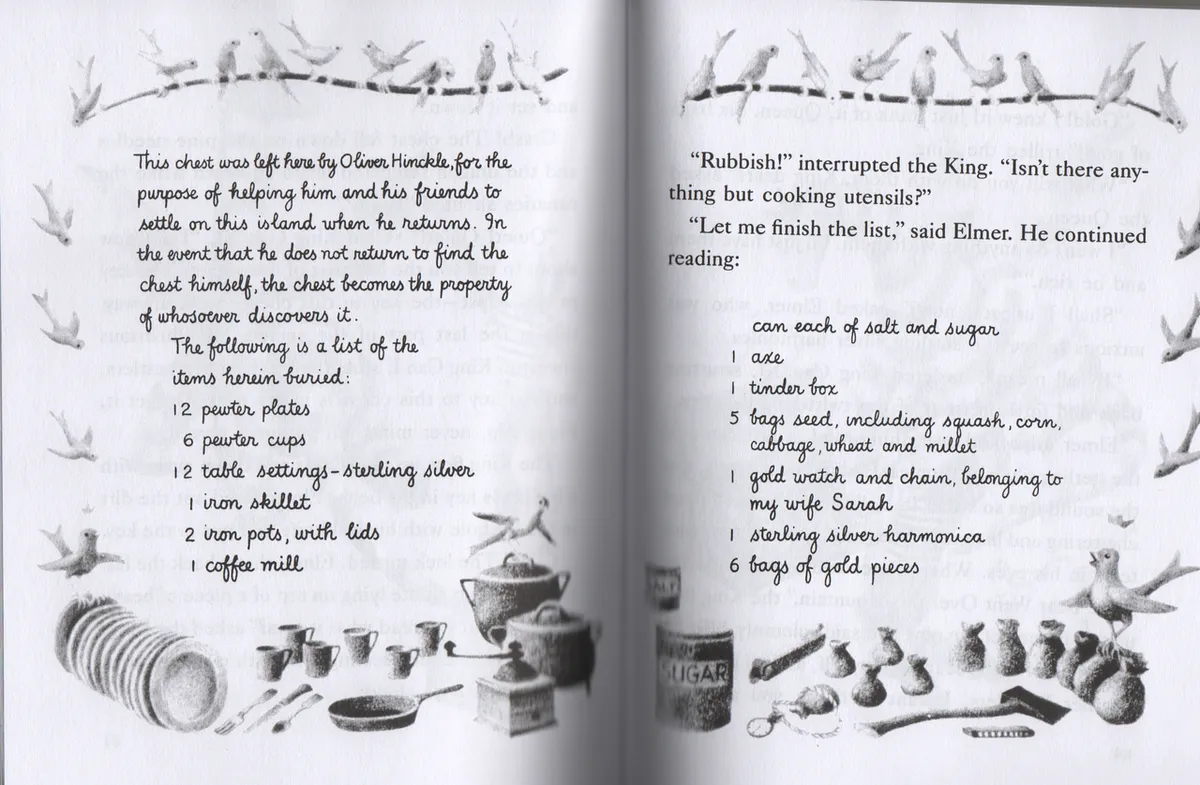 This chest was left here by Oliver Hinckle, for the
purpose of helping him and his friends to
settle on this island when he returns. In
the event that he does not return to find the
chest himself, the chest becomes the property
of whosoever discovers it.
The following is a list of the
items herein buried:
12 pewter plates
6 pewter cups
12 table settings - sterling silver
1 iron skillet
2 iron pots, with lids
1 coffee mill
“Rubbish!” interrupted the King. “Isn’t there any-
thing but cooking utensils?”
“Let me finish the list,” said Elmer. He continued
reading:
can each of salt and sugar
1 axe
1 tinder box
5 bags seed, including squash, corn,
cabbage, wheat and millet
1 gold watch and chain, belonging to
my wife Sarah
1 sterling silver harmonica
6 bags of gold pieces
SALT
SUGAR